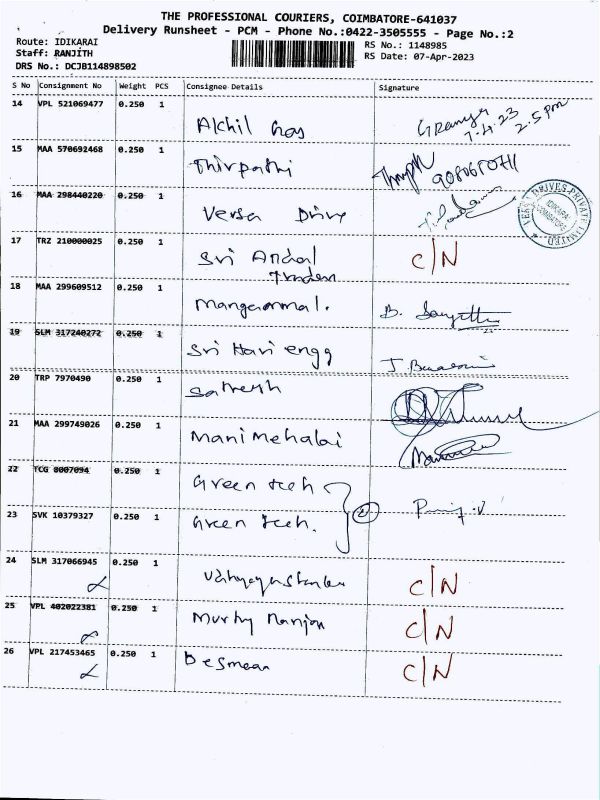 THE PROFESSIONAL COURIERS, COIMBATORE-641037
Delivery Runsheet - PCM - Phone No.:0422-3505555 - Page No.:2
Route: IDIKARAI
Staff: RANJITH
DRS No.: DCJB114898502
RS No.: 1148985
RS Date: 07-Apr-2023
S No Consignment No Weight PCS Consignee Details Signature
14 VPL 521069477 0.250 1 Akhil Gas
7.4.23 2.5 pm
15 MAA 570692468 0.250 1 Thirpathi
16 MAA 298440220 0.250 1 Versa Drive
VERSA DRIVES PRIVATE LIMITED
IDIKARAI
COIMBATORE
17 TRZ 210000025 0.250 1 Sri Andal C/N
Traders
18 MAA 299609512 0.250 1 Mangammal. B.
19 SLM 317240272 0.250 1 Sri Hari engg J.
20 TRP 7970490 0.250 1 Sathesh
21 MAA 299749026 0.250 1 Manimehalai
22 TCG 0007094 0.250 1 Green tech
23 SVK 10379327 0.250 1 Green tech. 2
24 SLM 317066945 0.250 1 C/N
25 VPL 402022381 0.250 1 Murthy Nanjan C/N
26 VPL 217453465 0.250 1 Desmean C/N